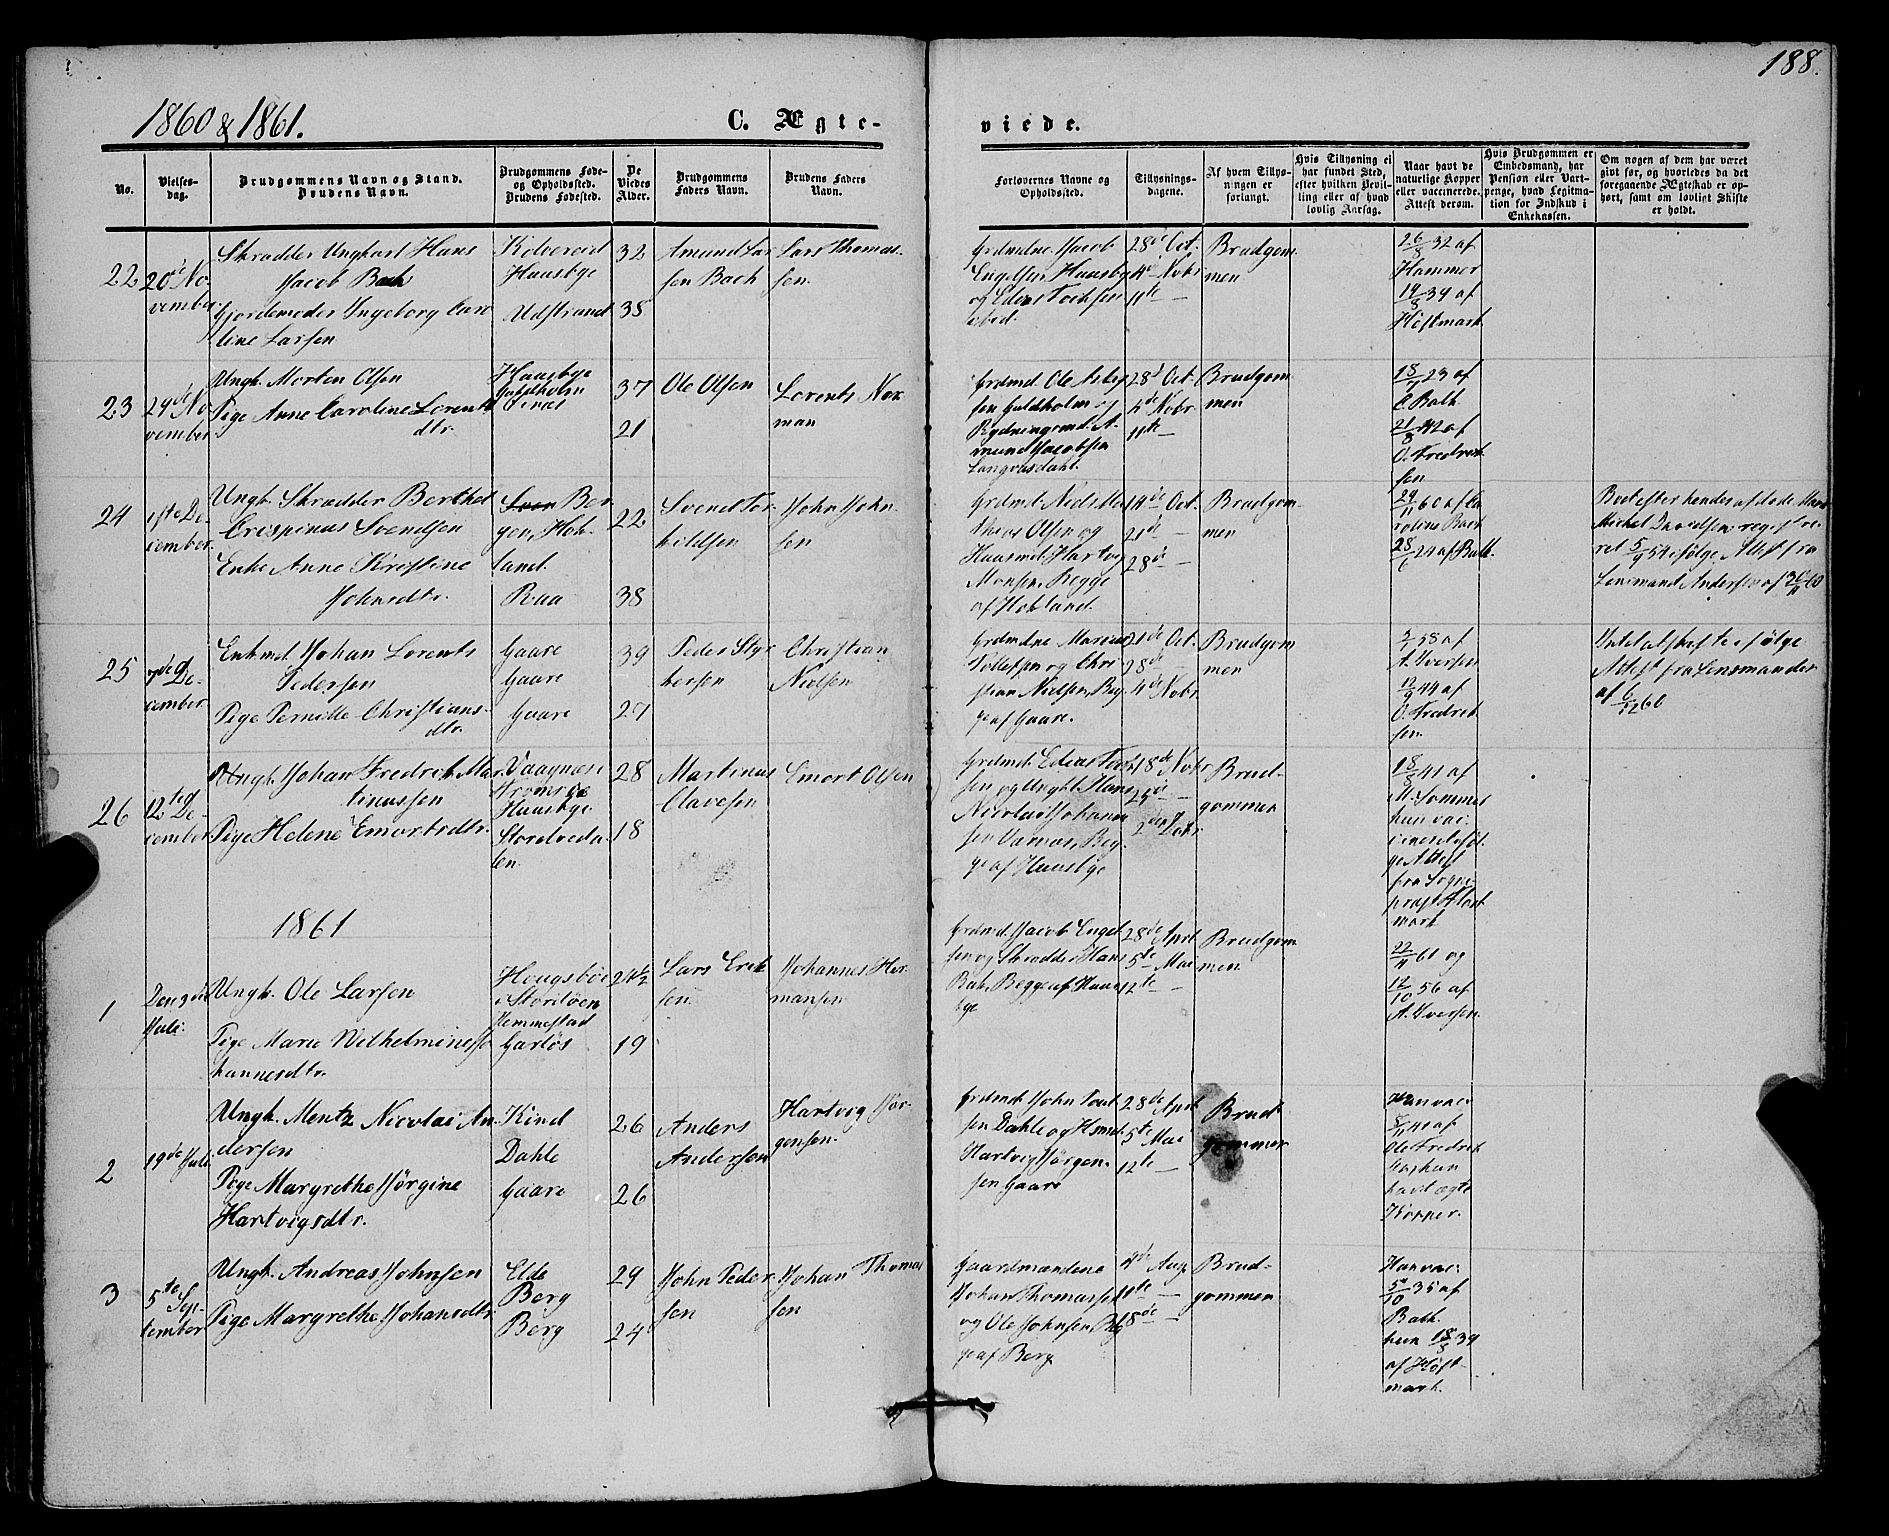 188.
1860 & 1861.
C. Ægte-
viede.
No.
Vielses-
dag.
Brudgommens Navn og Stand.
Brudens Navn.
Brudgommens Føde-
og Opholdssted.
Brudens Fødested.
De
Viedes
Alder.
Brudgommens
Faders Navn.
Brudens Faders
Navn.
Forlovernes Navne og
Opholdssted.
Tillysnings-
dagene.
Af hvem Tillys-
ningen er
forlangt.
Hvis Tillysning ei
har fundet Sted,
efter hvilken Bevil-
ling eller af hvad
lovlig Aarsag.
Naar havt de
naturlige Kopper
eller vaccinerede.
Attest derom.
Hvis Brudgommen er
Embedsmand, har
Pension eller Vart-
penge, hvad Legitma-
tion for Indskud i
Enkekassen.
Om nogen af dem har været
givt før, og hvorledes da det
foregaaende Ægteskab er op-
hørt, samt om lovligt Skifte
er holdt.
22
20de No-
vember
Skrædder Ungkarl Hans
Jacob Bach
Gjordemoder Ingeborg Caro
line Larsen
Kolvereid
Haasbye
Udstrand
32
38
Amund Lar
sen Bach
Lars Thomas-
sen.
Grdmdne. Jacob
Engelsen Haasby
28de Oct.
4de Nobr
11te —
Brudgom
men
26/8 32 af
Hammer
14/8 39 af
Høstmark
23
29de No
vember
Ungk. Morten Olsen
Pige Anne Caroline Lorents
dtr.
Haasbye
Guldholm
37
21
Ole Olsen
Lorents Nor
man
Grdmd. Ole
sen Guldholm og
Rydningsmd. A-
mund Jacobsen
28de Oct.
4de Nobr
11te —
Brudgom
men
18/7 23 af
C. Bath
21/8 42 af
O. Fredrik
sen
24
1ste De-
cember.
Ungk. Skrædder Berthel
Crispinus Svendsen
Enke Anne Kristine
Johnsdtr.
Ber
gen, Hob-
land.
Raa
22
38
Svend Tor
kildsen
John John-
sen
Grdmd. Niels Ma
theus Olsen og
Huusmd. Hartvig
Monsen, Begge
af Hobland.
14de Oct.
21de —
28de —
Brudgom-
men
29/11 60 af Ca
roline Bach
28/6 24 af Bath.
Boet efter hendes afdøde Mand
Michel Davidsen regist re-
ret 5/9 54 ifølge Attest fra
Lensmand Andersen af 30/11 60
25
7de De-
cember
Enkmd. Johan Lorents
Pedersen
Pige Pernille Christians-
dtr.
Gaare
Gaare
Gaare
39
27
Peder Styr
kersen
Christian
Nielsen
Grdmdne Marius
Tollefsen og Chri
stian Nielsen, Beg-
ge af Gaare.
21de Oct.
28de —
4de Nobr
Brudgom
men
58 af
A. Iversen
12/9 44 af
O. Fredrik
sen.
ifølge
Attest fra Lensmanden
af 6/12 60
26
12te De-
cember
Ungk. Johan Fredrik Mar
tinussen
Pige Helene Emortsdtr.
Vaagnæs i
Tromsøe
Haasbye
Stordveda-
len.
28
18
Martinus
Olavesen
Emort Olsen
Grdmd. Edias Toch
sen og Ungk. Hans
Nicolai Johan
sen Begge
af Haasbye
18de Nobr
25de —
2den Debr
Brud-
gommen
18/8 41 af
M. Sommer
hun vac-
cineret iføl
ge Attest
fra Sogne-
præst Høst
mark
1861
1
Den 3die
Juli.
Ungk. Ole Larsen
Pige Marie Wilhelmine Jo
hannesdtr.
Hougsbøe
i Stordøen
Hemmestad
Garløs
24½
19
Lars Erik
sen
Johannes Her
mansen
Grdmd. Jacob Engel
sen og Skrædder Hans
Bach, Begge af Haas
bye
28de April
5te Mai
12te —
Brudgom
men
22/11 61 og
12/10 56 af
A. Iversen.
2
19de Juli
Ungk. Mentz Nicolai An-
dersen
Pige Margrethe Jørgine
Hartvigsdtr.
Kind
Dahle
Gaare
26
26
Anders
Andersen
Hartvig Jør-
gensen.
Grdmd. John Paul
sen Dahle og Hsmd.
Hartvig Jørgen-
sen Gaare
28de April
5te Mai
12te —
Brud-
gommen
Han vac
41 af
Ole Fredrik
sen, hun
havt ægte
Kopper.
3
5te Sep-
tember
Ungk. Andreas Johnsen
Pige Margrethe Johansdtr
Elde
Berg
Berg
29
24
John Peder
sen
Johan Thomas
sen
Gaardmændene
Johan Thomassen
og Ole Johnsen, Beg
ge af Berg
4de Aug
11te —
18de —
Brud-
gommen
Han vac:
5/10 35 af
Bath.
hun 18/8 39
af Høst-
mark.